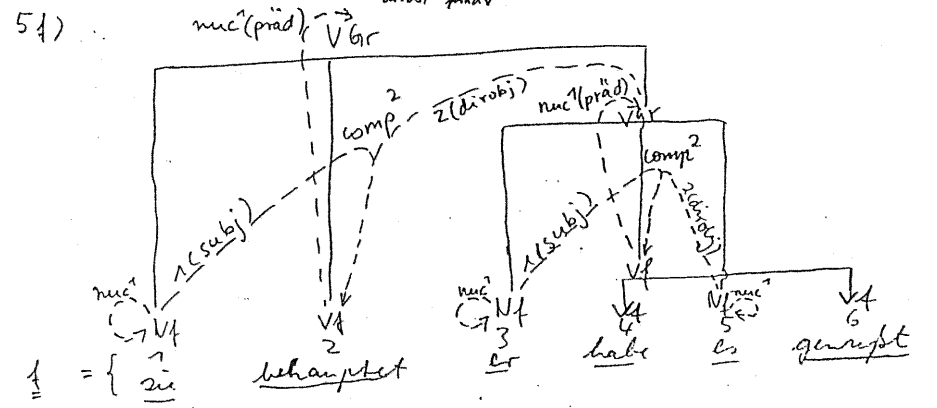 5f)
nuc¹(präd) VGr
comp² 2(dirobj) nuc¹(präd) VGr
1(subj) 1(subj) comp² 2(dirobj)
Vf
nuc¹ Nf Vf nuc¹ Nf Vf Nf nuc¹ Vf
1 2 3 4 5 6
f = { sie behauptet er habe es gewußt